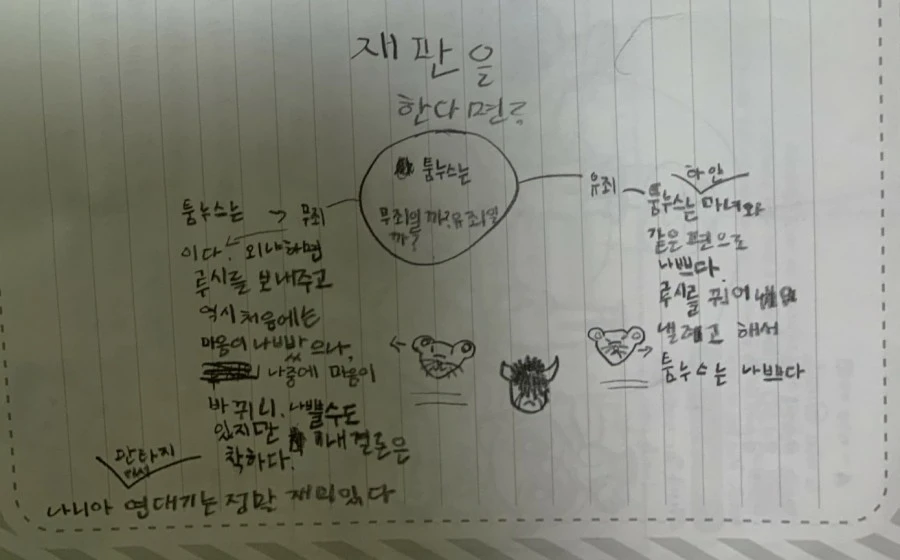 재판을
한다면?
툼누스는
무죄일까?유죄일
까?
툼누스는 → 무죄
이다. 외냐하면
루시를 보내주고
역시 처음에는
마음이 나빠밨으나,
나중에 마음이
바뀌니. 나쁠수도
있지만 내 결론은
착하다.
판타지
나니아 연대기는 정말 재미있다
유죄
하얀
툼누스는 마녀와
같은 편으로
나쁘다.
루시를 꿰어
낼려고 해서
툼누스는 나쁘다